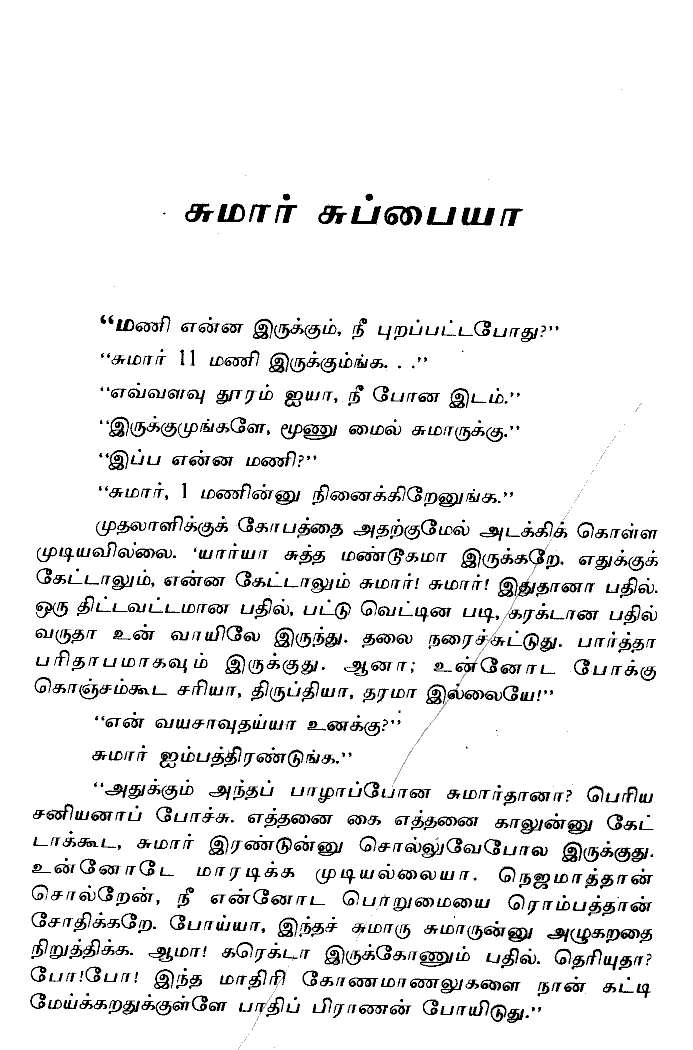 சுமார் சுப்பையா
“மணி என்ன இருக்கும், நீ புறப்பட்டபோது?”
“சுமார் 11 மணி இருக்கும்ங்க. . .”
“எவ்வளவு தூரம் ஐயா, நீ போன இடம்.”
“இருக்குமுங்களே, மூணு மைல் சுமாருக்கு.”
“இப்ப என்ன மணி?”
“சுமார், 1 மணின்னு நினைக்கிறேனுங்க.”
முதலாளிக்குக் கோபத்தை அதற்குமேல் அடக்கிக் கொள்ள
முடியவில்லை. ‘யார்யா சுத்த மண்டூகமா இருக்கறே. எதுக்குக்
கேட்டாலும், என்ன கேட்டாலும் சுமார்! சுமார்! இதுதானா பதில்.
ஒரு திட்டவட்டமான பதில், பட்டு வெட்டின படி, கரக்டான பதில்
வருதா உன் வாயிலே இருந்து. தலை நரைச்சுட்டுது. பார்த்தா
பரிதாபமாகவும் இருக்குது. ஆனா; உன்னோட போக்கு
கொஞ்சம்கூட சரியா, திருப்தியா, தரமா இல்லையே!”
“என் வயசாவுதய்யா உனக்கு?”
சுமார் ஐம்பத்திரண்டுங்க.”
“அதுக்கும் அந்தப் பாழாப்போன சுமார்தானா? பெரிய
சனியனாப் போச்சு. எத்தனை கை எத்தனை காலுன்னு கேட்
டாக்கூட, சுமார் இரண்டுன்னு சொல்லுவேபோல இருக்குது.
உன்னோடே மாரடிக்க முடியல்லையா. நெஜமாத்தான்
சொல்றேன், நீ என்னோட பொறுமையை ரொம்பத்தான்
சோதிக்கறே. போய்யா, இந்தச் சுமாரு சுமாருன்னு அழுகறதை
நிறுத்திக்க. ஆமா! கரெக்டா இருக்கோணும் பதில். தெரியுதா?
போ!போ! இந்த மாதிரி கோணமாணலுகளை நான் கட்டி
மேய்க்கறதுக்குள்ளே பாதிப் பிராணன் போயிடுது.”